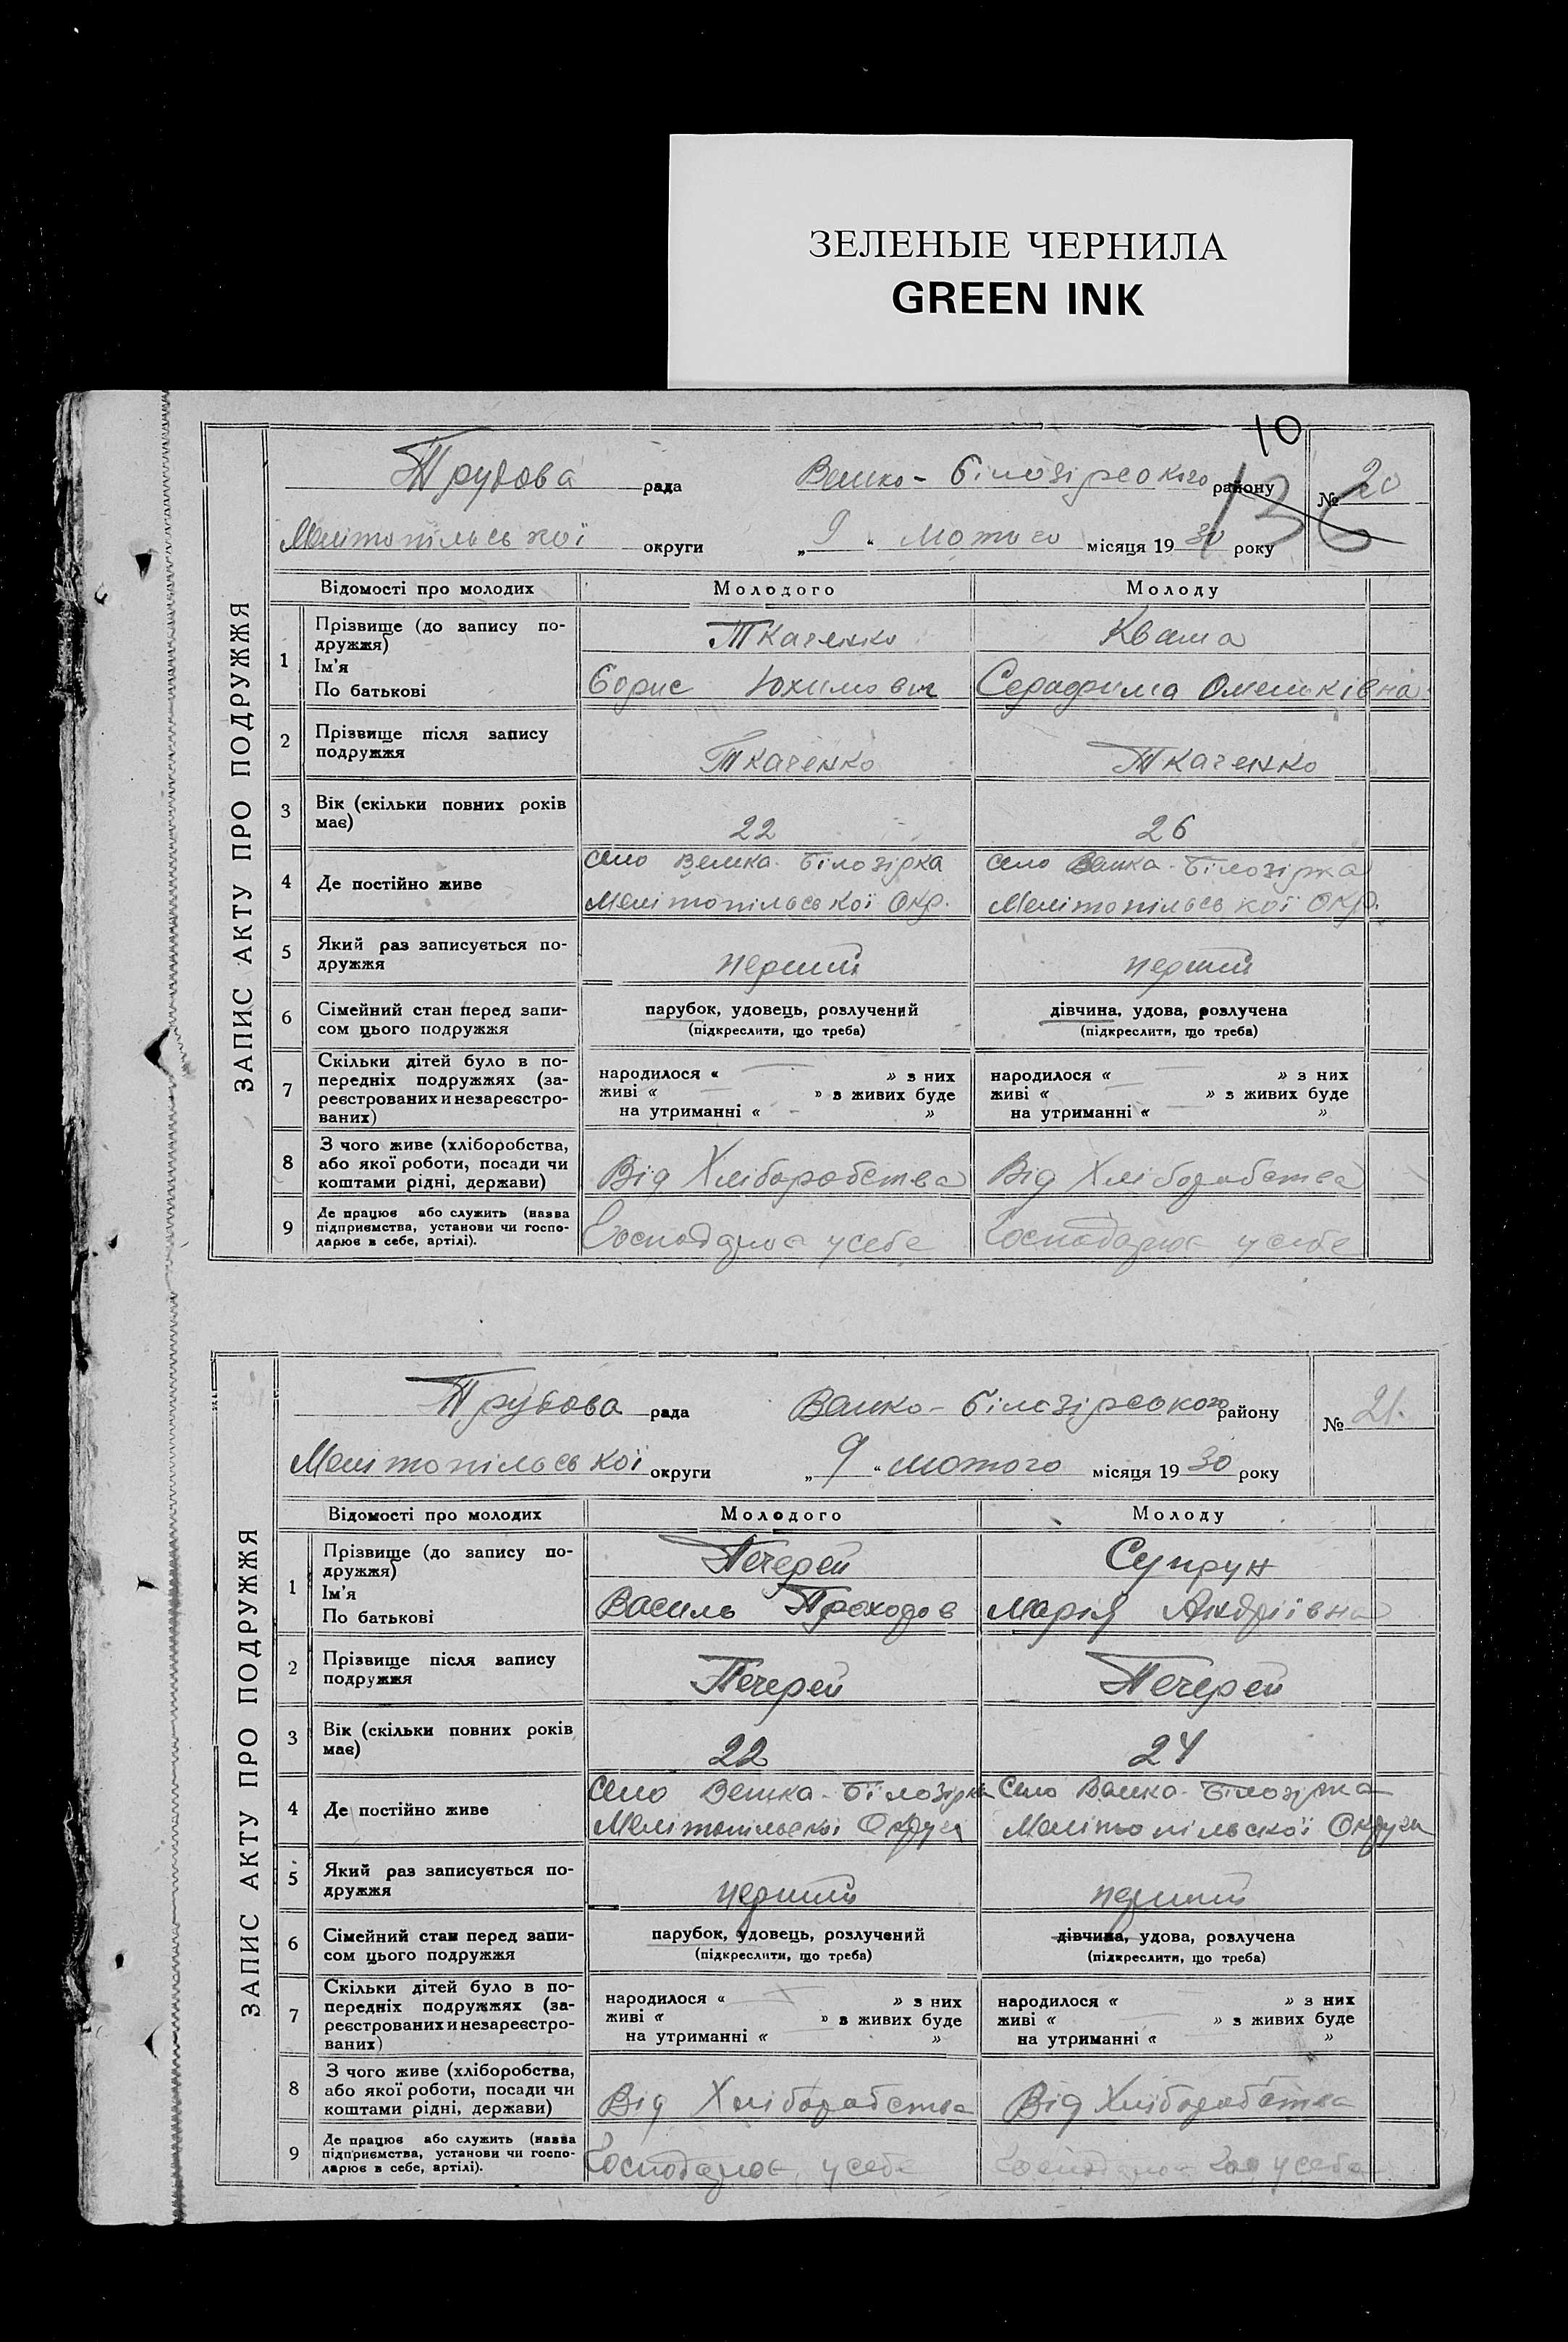 ЗЕЛЕНЫЕ ЧЕРНИЛА
GREEN INK
10
136
Трудова рада Велико-Білозірського району № 20
Мелітопільської округи „9“ лютого місяця 1930 року
ЗАПИС АКТУ ПРО ПОДРУЖЖЯ
Відомості про молодих Молодого Молоду
1 Прізвище (до запису по-
дружжя) Ткаченко Кваша
Ім'я
По батькові Борис Юхимович Серафима Омельківна
2 Прізвище після запису
подружжя Ткаченко Ткаченко
3 Вік (скільки повних років
має) 22 26
4 Де постійно живе село Велика-Білозірка село Велика-Білозірка
Мелітопільської Окр. Мелітопільської Окр.
5 Який раз записується по-
дружжя перший перший
6 Сімейний стан перед запи-
сом цього подружжя парубок, удовець, розлучений дівчина, удова, розлучена
(підкреслити, що треба) (підкреслити, що треба)
7 Скільки дітей було в по-
передніх подружжях (за-
реєстрованих и незареєстро-
ваних) народилося « — » з них народилося « — » з них
живі « — » з живих буде живі « — » з живих буде
на утриманні « - » на утриманні « — »
8 З чого живе (хліборобства,
або якої роботи, посади чи
коштами рідні, держави) Від Хліборобства Від Хліборобства
9 Де працює або служить (назва
підприємства, установи чи госпо-
дарює в себе, артілі). Господарює у себе Господарює у себе
Трудова рада Велико-Білозірського району № 21.
Мелітопільської округи „9“ лютого місяця 1930 року
ЗАПИС АКТУ ПРО ПОДРУЖЖЯ
Відомості про молодих Молодого Молоду
1 Прізвище (до запису по-
дружжя) Печерей Супрун
Ім'я
По батькові Василь Прохоров Марія Андріївна
2 Прізвище після запису
подружжя Печерей Печерей
3 Вік (скільки повних років
має) 22 24
4 Де постійно живе Село Велика-Білозірка Село Велика-Білозірка
Мелітопільскої Округи Мелітопільскої Округи
5 Який раз записується по-
дружжя перший перший
6 Сімейний стан перед запи-
сом цього подружжя парубок, удовець, розлучений дівчина, удова, розлучена
(підкреслити, що треба) (підкреслити, що треба)
7 Скільки дітей було в по-
передніх подружжях (за-
реєстрованих и незареєстро-
ваних) народилося « — » з них народилося « — » з них
живі « » з живих буде живі « » з живих буде
на утриманні « — » на утриманні « — »
8 З чого живе (хліборобства,
або якої роботи, посади чи
коштами рідні, держави) Від Хліборобства Від Хліборобства
9 Де працює або служить (назва
підприємства, установи чи госпо-
дарює в себе, артілі). Господарює у себе Господарює у себе